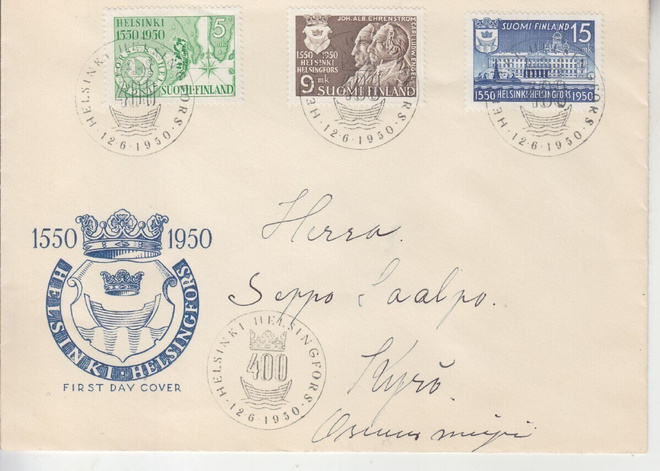 HELSINKI 5
1550 1950 mk
SUOMI-FINLAND
JOH. ALB. EHRENSTRÖM
CARL LUDVIG ENGEL
1550 1950
HELSINKI
HELSINGFORS
9 mk SUOMI FINLAND
SUOMI FINLAND 15 mk
1550 HELSINKI·HELSINGFORS 1950
HELSINKI HELSINGFORS
400
·12·6·1950·
HELSINKI HELSINGFORS
400
·12·6·1950·
HELSINKI HELSINGFORS
400
·12·6·1950·
Herra
Seppo Saalpo.
Kyrö.
1550 1950
HELSINKI·HELSINGFORS
FIRST DAY COVER
HELSINKI HELSINGFORS
400
·12·6·1950·